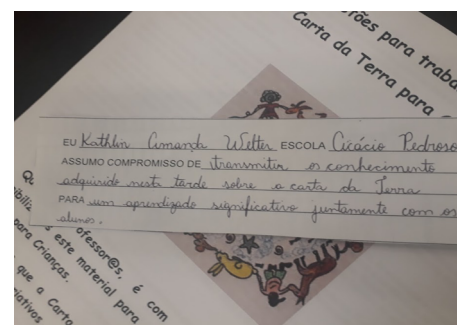 ões para traba
Carta da Terra para
EU Kathlin Amanda Welter ESCOLA Cicácio Pedroso
ASSUMO COMPROMISSO DE transmitir os conhecimento
adquirido nesta tarde sobre a carta da Terra
PARA um aprendizado significativo juntamente com os
alunos.
Qu
ibili
ofessor@s, é com
s este material para
para Crianças.
que a Carta
iativos